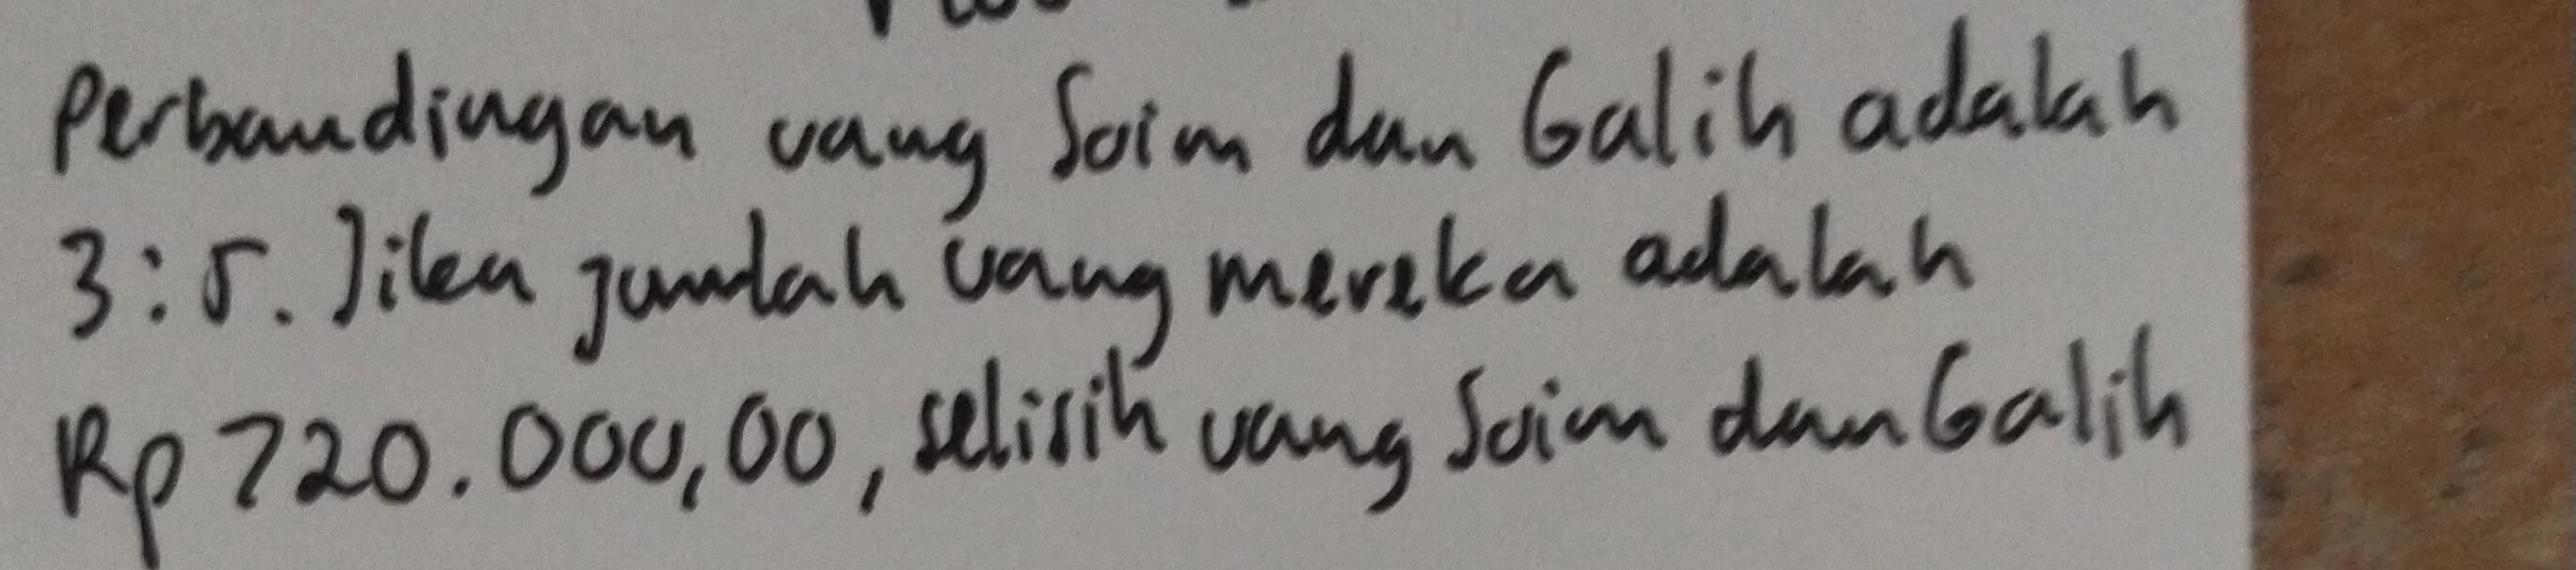 Perbandingan uang Soim dan Galih adalah
3:5. Jika jumlah uang mereka adalah
Rp 720.000,00, selisih uang Soim dan Galih